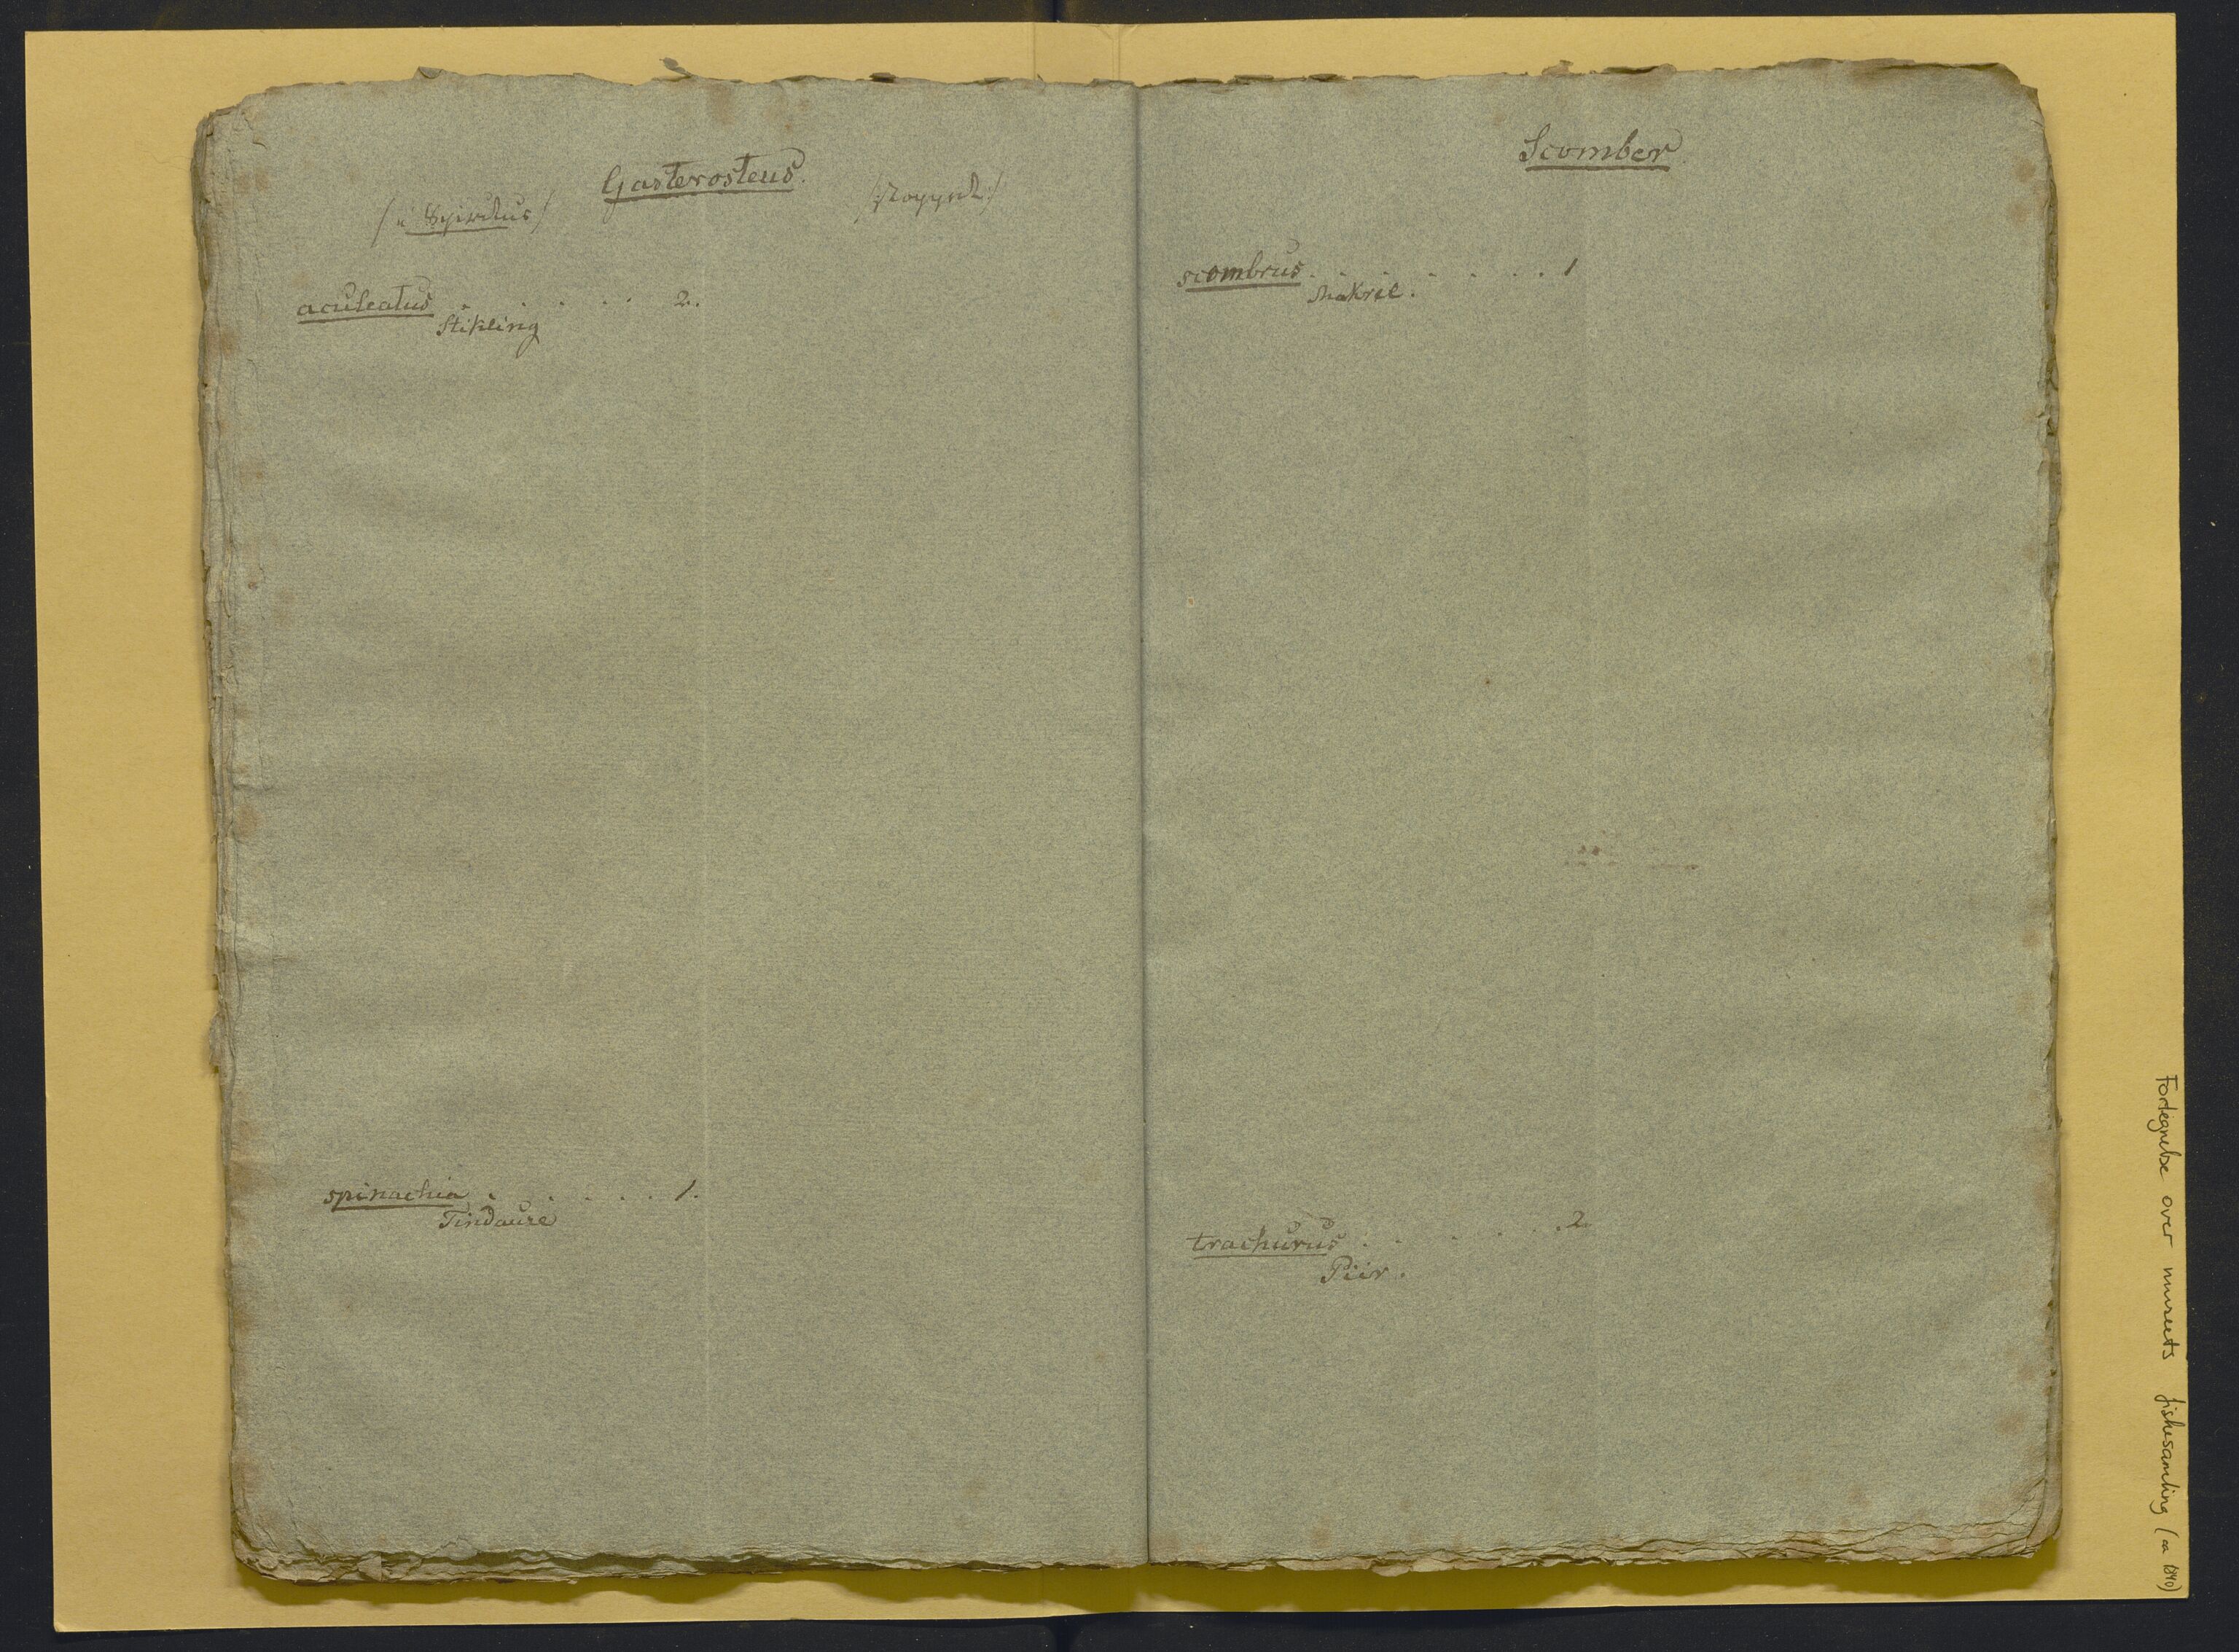 Gasterosteus.
/i Spiritus/ /stoppet/
aculeatus . . . . . 2.
Stikling
spinachia . . . . . 1.
Tindaure
Scomber
scombrus . . . . . . . 1
Makrel.
trachurus . . . . . 2
Piir.
Fortegnelse over museets fiskesamling (ca 1840)